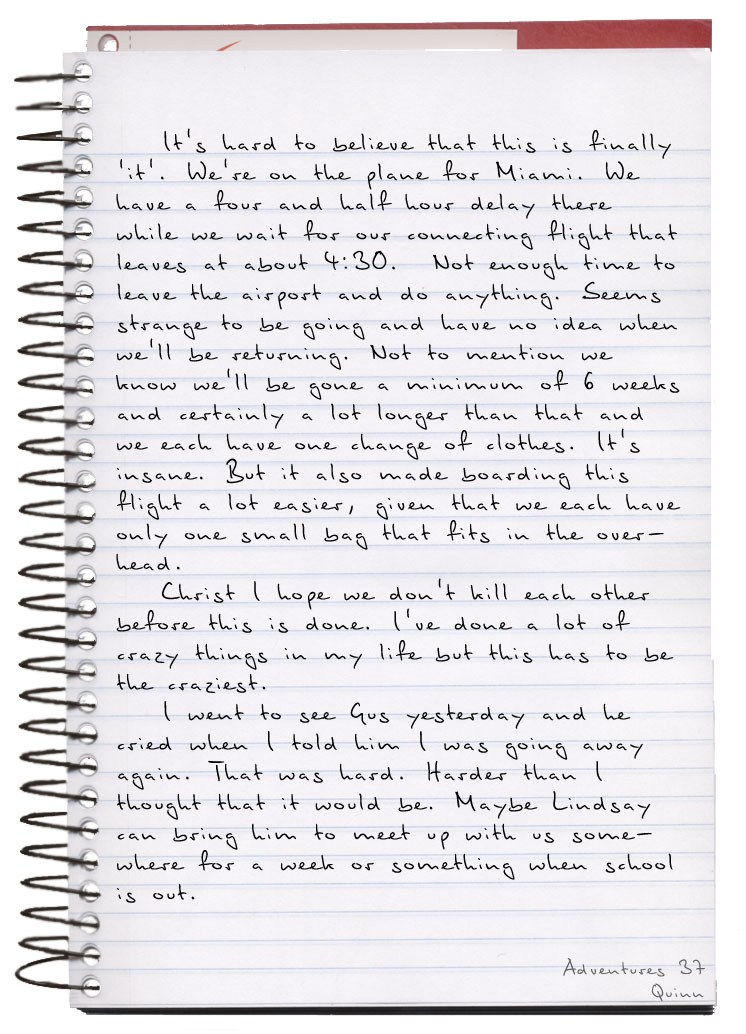 It's hard to believe that this is finally
'it'. We're on the plane for Miami. We
have a four and half hour delay there
while we wait for our connecting flight that
leaves at about 4:30. Not enough time to
leave the airport and do anything. Seems
strange to be going and have no idea when
we'll be returning. Not to mention we
know we'll be gone a minimum of 6 weeks
and certainly a lot longer than that and
we each have one change of clothes. It's
insane. But it also made boarding this
flight a lot easier, given that we each have
only one small bag that fits in the over-
head.
Christ I hope we don't kill each other
before this is done. I've done a lot of
crazy things in my life but this has to be
the craziest.
I went to see Gus yesterday and he
cried when I told him I was going away
again. That was hard. Harder than I
thought that it would be. Maybe Lindsay
can bring him to meet up with us some-
where for a week or something when school
is out.
Adventures 37
Quinn